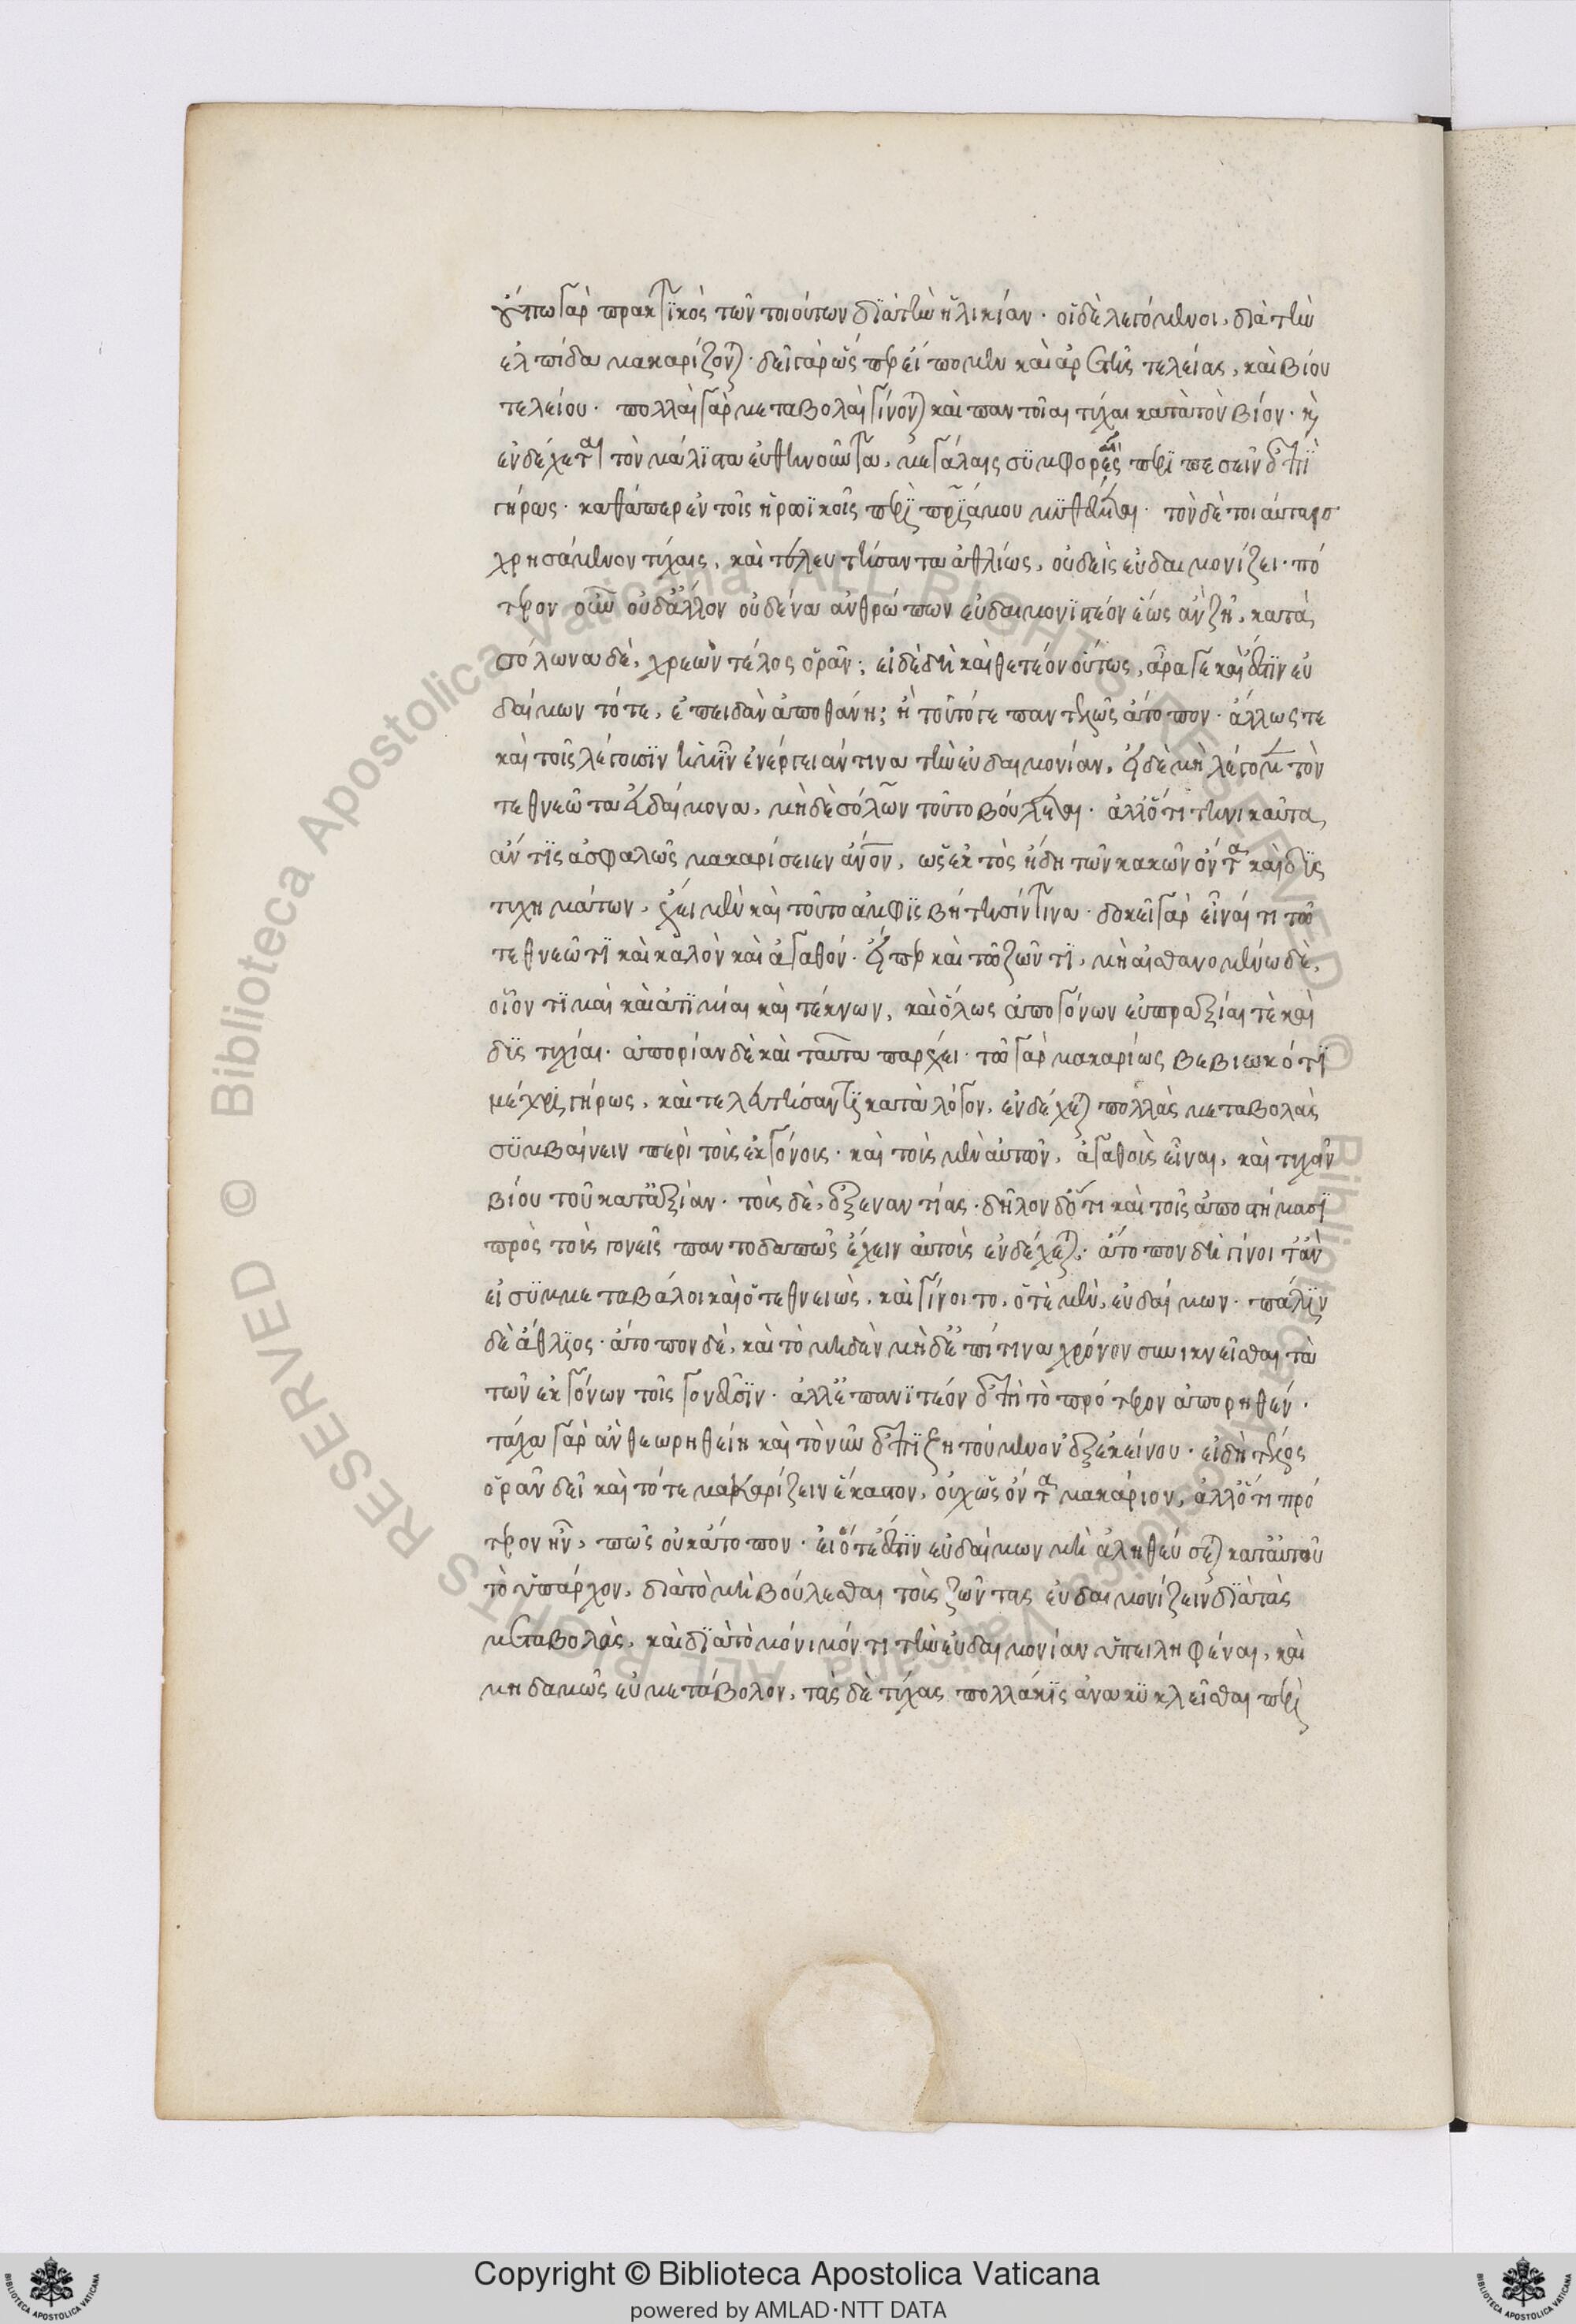 οὔπω γὰρ πρακτικὸς τῶν τοιούτων διὰ τὴν ἡλικίαν· οἱ δὲ λεγόμενοι, διὰ τὴν
ἐλπίδα μακαρίζονται· δεῖ γὰρ ὥσπερ εἴπομεν καὶ ἀρετῆς τελείας, καὶ βίου
τελείου· πολλαὶ γὰρ μεταβολαὶ γίνονται καὶ παντοῖαι τύχαι κατὰ τὸν βίον· καὶ
ἐνδέχεται τὸν μάλιστα εὐθηνοῦντα, μεγάλαις συμφοραῖς περιπεσεῖν ἐπὶ
γήρως· καθάπερ ἐν τοῖς ἡρωϊκοῖς περὶ πριάμου μυθεύεται· τὸν δὲ τοιαύταις
χρησάμενον τύχαις, καὶ τελευτήσαντα ἀθλίως, οὐδεὶς εὐδαιμονίζει· πό
τερον οὖν οὐδ' ἄλλον οὐδένα ἀνθρώπων εὐδαιμονιστέον ἕως ἂν ζῇ, κατὰ
σόλωνα δὲ, χρεὼν τέλος ὁρᾶν; εἰ δὲ δὴ καὶ θετέον οὕτως, ἆρα γε καὶ ἔστιν εὐ
δαίμων τότε, ἐπειδὰν ἀποθάνη; ἢ τοῦτό γε παντελῶς ἄτοπον· ἄλλως τε
καὶ τοῖς λέγουσιν ἡμῖν ἐνέργειάν τινα τὴν εὐδαιμονίαν, εἰ δὲ μὴ λέγομεν τὸν
τεθνεῶτα εὐδαίμονα, μηδὲ σόλων τοῦτο βούλεται· ἀλλ' ὅτι τηνικαῦτα
ἄν τις ἀσφαλῶς μακαρίσειεν ἄνον, ὡς ἐκτὸς ἤδη τῶν κακῶν ὄντα καὶ δυς
τυχημάτων, ἔχει μὲν καὶ τοῦτο ἀμφισβήτησίν τινα· δοκεῖ γὰρ εἶναί τι τῶ
τεθνεῶτι καὶ κακὸν καὶ ἀγαθόν· εἴπερ καὶ τῶ ζῶντι, μὴ αἰσθανομένω δὲ,
οἷον τιμαὶ καὶ ἀτιμίαι καὶ τέκνων, καὶ ὅλως ἀπογόνων εὐπραξίαι τὲ καὶ
δυστυχίαι· ἀπορίαν δὲ καὶ ταῦτα παρέχει· τῶ γὰρ μακαρίως βεβιωκότι
μέχρι γήρως, καὶ τελευτήσαντι κατὰ λόγον, ἐνδέχεται πολλὰς μεταβολὰς
συμβαίνειν περὶ τοὺς ἐκγόνους· καὶ τοὺς μὲν αὐτῶν, ἀγαθοὺς εἶναι, καὶ τυχεῖν
βίου τοῦ κατ' ἀξίαν· τοὺς δὲ, ἐξεναντίας· δῆλον δ' ὅτι καὶ τοῖς ἀποστήμασι
πρὸς τοὺς γονεῖς παντοδαπῶς ἔχειν αὐτοὺς ἐνδέχεται· ἄτοπον δὴ γίνοιτ' ἂν
εἰ συμμεταβάλοι καὶ ὁ τεθνειὼς, καὶ γίνοιτο, ὁτὲ μὲν, εὐδαίμων· πάλιν
δὲ ἄθλιος· ἄτοπον δὲ, καὶ τὸ μηδὲν μηδ' ἐπί τινα χρόνον συνικνεῖσθαι τὰ
τῶν ἐκγόνων τοῖς γονεῦσιν· ἀλλ' ἐπανιτέον ἐπὶ τὸ πρότερον ἀπορηθέν·
τάχα γὰρ ἂν θεωρηθείη καὶ τὸ νῦν ἐπιζητούμενον ἐξ ἐκείνου· εἰ δὴ τέλος
ὁρᾶν δεῖ καὶ τότε μακαρίζειν ἕκαστον, οὐχ ὡς ὄντα μακάριον, ἀλλ' ὅτι πρό
τερον ἦν, πῶς οὐκ ἄτοπον· εἰ ὅτε ἔστιν εὐδαίμων μὴ ἀληθεύσεται κατ' αὐτοῦ
τὸ ὑπάρχον, διὰ τὸ μὴ βούλεσθαι τοὺς ζῶντας εὐδαιμονίζειν διὰ τὰς
μεταβολὰς, καὶ διὰ τὸ μόνιμόν τι τὴν εὐδαιμονίαν ὑπειληφέναι, καὶ
μηδαμῶς εὐμετάβολον, τὰς δὲ τύχας πολλάκις ἀνακυκλεῖσθαι περὶ
Copyright © Biblioteca Apostolica Vaticana
powered by AMLAD·NTT DATA